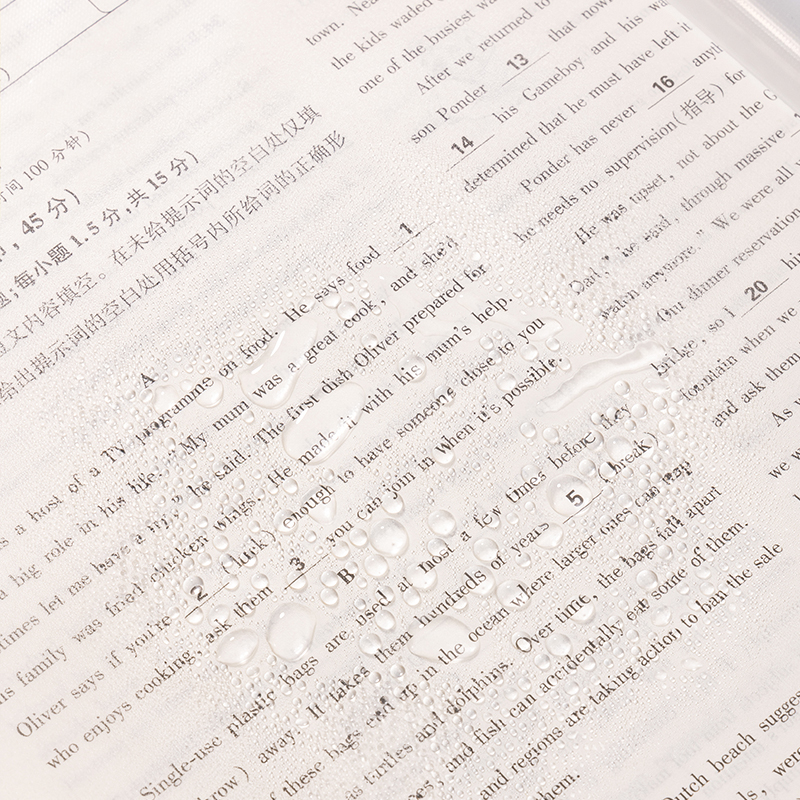 )
时间 100 分钟)
, 45 分)
题;每小题 1.5 分,共 15 分)
短文内容填空。在未给提示词的空白处仅填
给出提示词的空白处用括号内所给词的正确形
A
s a host of a TV programme on food. He says food 1
a big role in his life. "My mum was a great cook, and she'd
times let me have a try," he said. The first dish Oliver prepared for
is family was fried chicken wings. He made it with his mum's help.
Oliver says if you're 2 (luck) enough to have someone close to you
who enjoys cooking, ask them 3 you can join in when it's possible.
B
Single-use plastic bags are used at most a few times before they
(throw) away. It takes them hundreds of years 5 (break)
of these bags end up in the ocean where larger ones can trap
as turtles and dolphins. Over time, the bags fall apart
ces, and fish can accidentally eat some of them.
and regions are taking action to ban the sale
hem.
town. Nea
the kids waded
one of the busiest wa
After we returned to
son Ponder 13 that now
14 his Gameboy and his wa
determined that he must have left it
Ponder has never 16 anyth
he needs no supervision(指导) for
He was upset, not about the G
Dad," he said, through massive
watch anymore." We were all
Our dinner reservation
bridge, so i 20 hi
fountain when we
and ask them
As
we w
Dutch beach sugges
ls, were